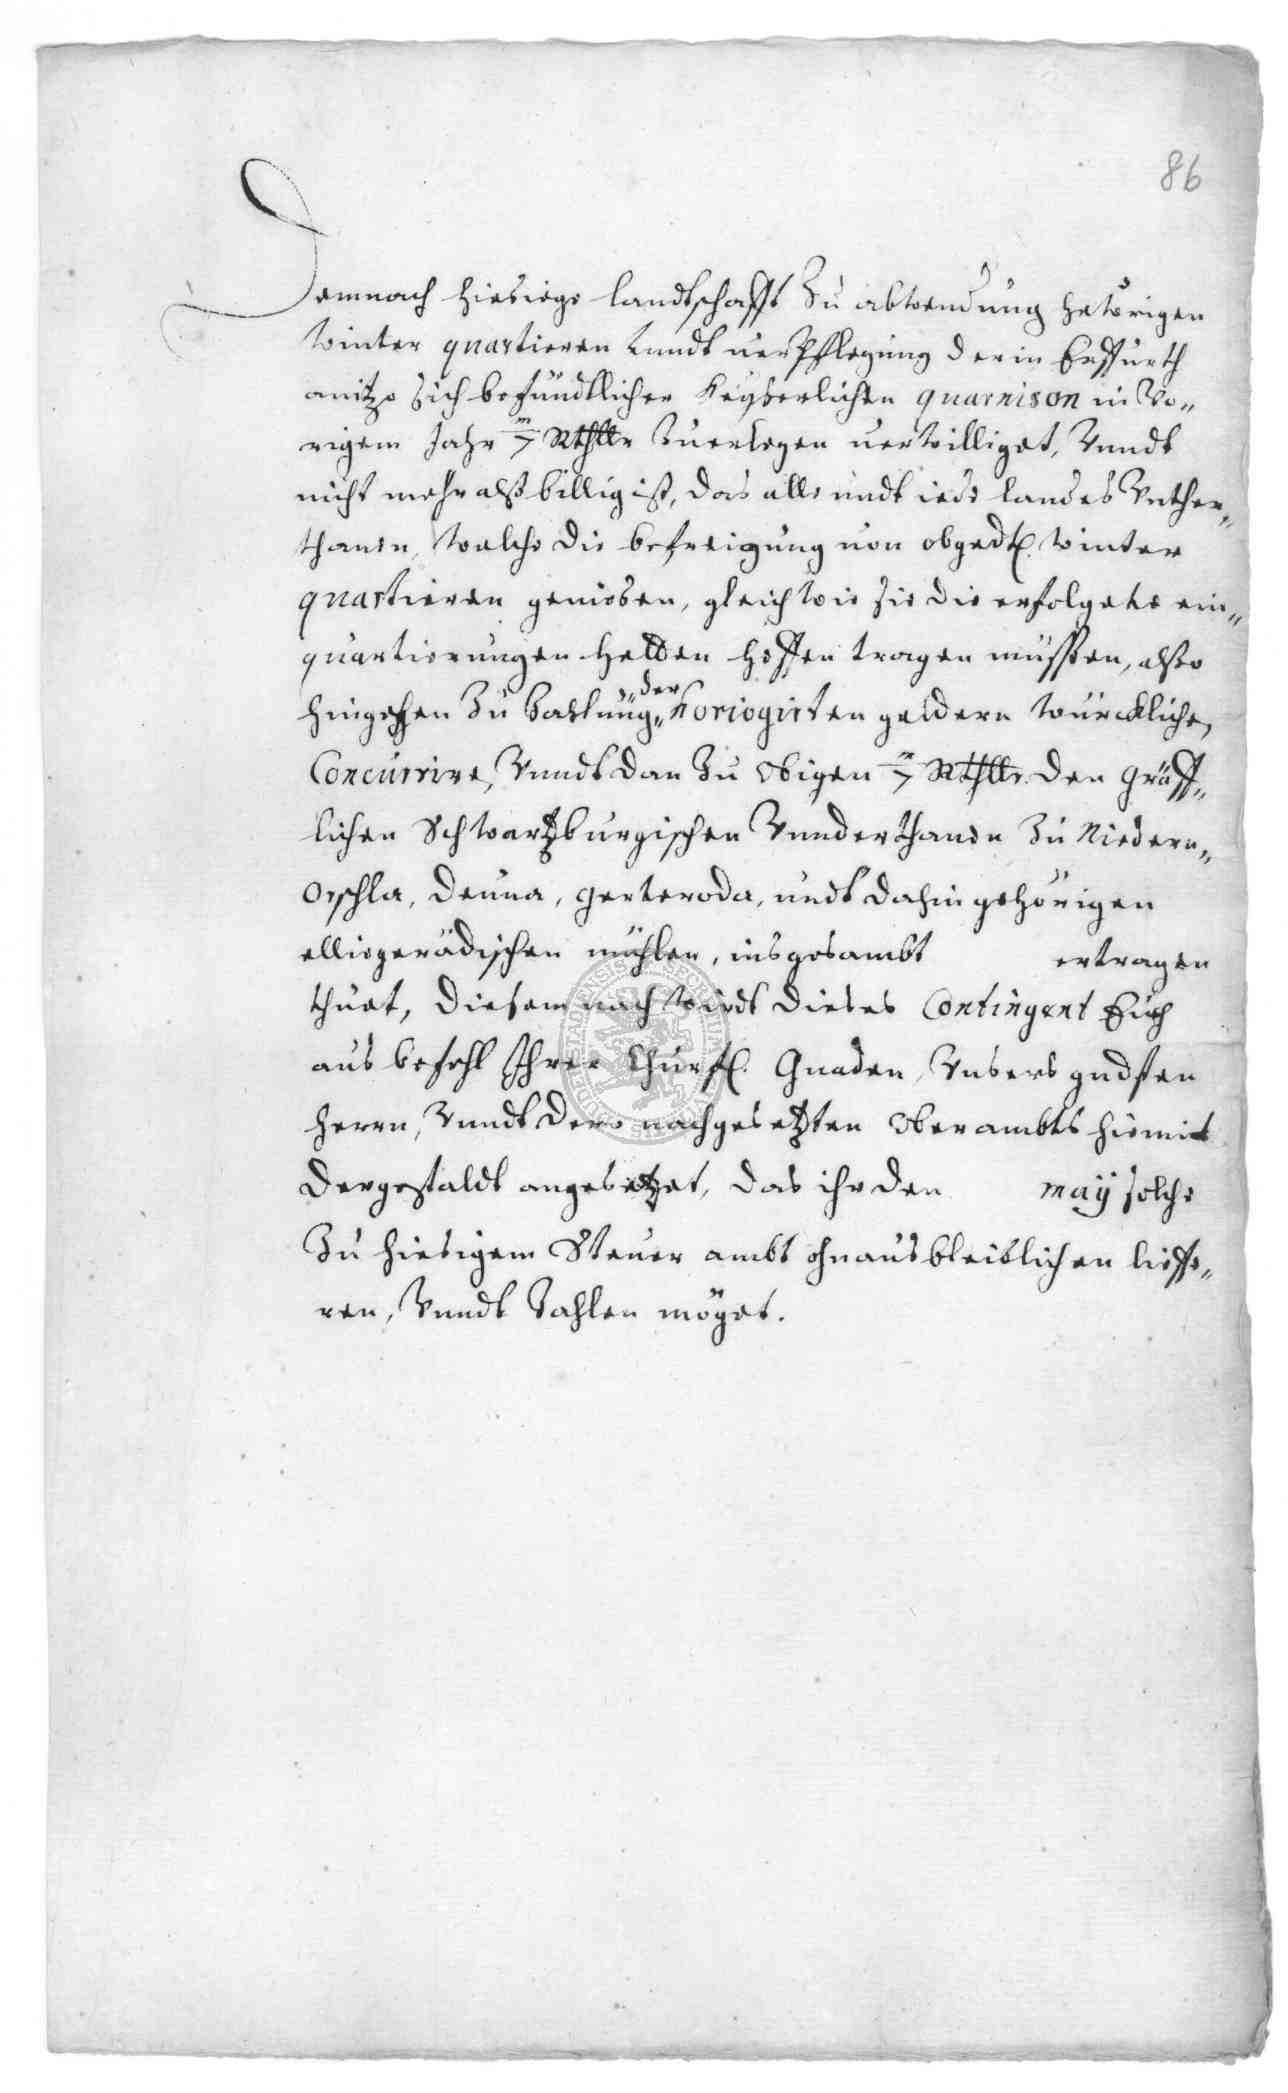 86
Demnach hiesiege landtschafft Zu abwendung hewrigen
Winter quartieren Lundt verPflegung der in Erffurth
anitzo sich befündtlicher Keyserlichen quarnison in Vo„
rigem Jahr m/7 Rthllr Zuerlegen verwilliget, Vnndt
nicht mehr alß billig ist, das alle undt iede landes Vnther„
thanen, welche die befreigung von obgedt. winter
quartieren geniesen, gleich wie sie die erfolgete ein„
quartierungen hetten helffen tragen müssen, also
hingegen Zu Zahlung„ der geldern würcklichen
Concurrire, Vnndt dan Zu obigen m/7 Rthllr. den gräff„
lichen Schwartzburgischen Vnnderthanen Zu Niedern„
Orschla, Deuna, gerteroda, undt dahin gehörigen
mühlen, insgesambt ertragen
thuet, diesem nach wirdt dieses Contingent Euch
aus befehl Ihrer Churfl. Gnaden, Vnsers gndsten
herrn, Vnndt dero nachgesetzten Oberambts hiemit
dergestaldt angesetzet, das ihr den maij solche
Zu hiesigem Steuer ambt ohnausbleiblichen lieffe„
ren, Vnndt Zahlen möget.